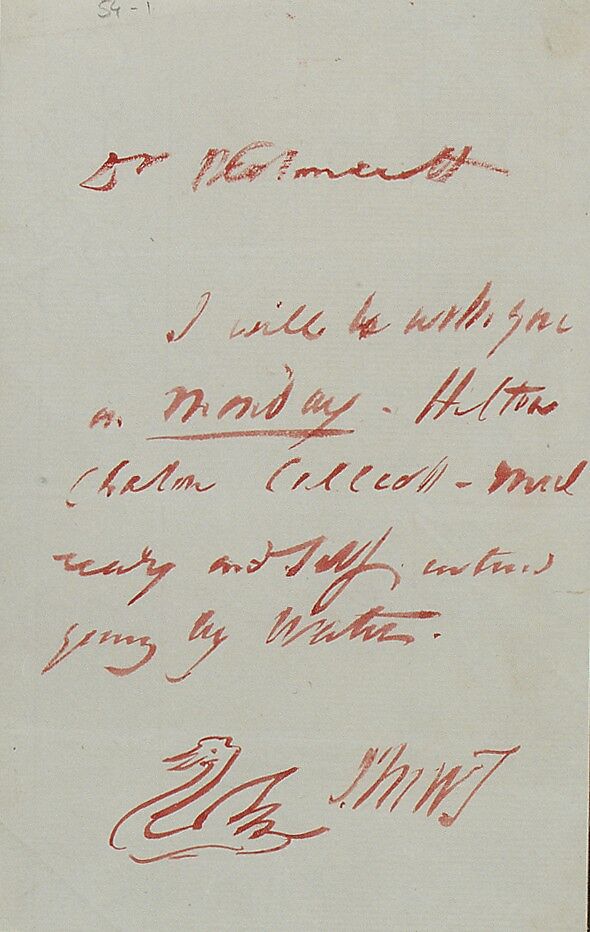 54-1
Dr Westmacott
I will be with you
on Monday - Hilton
Chalon Callcott - Mul
ready and Self intend
going by Water.
JMWT